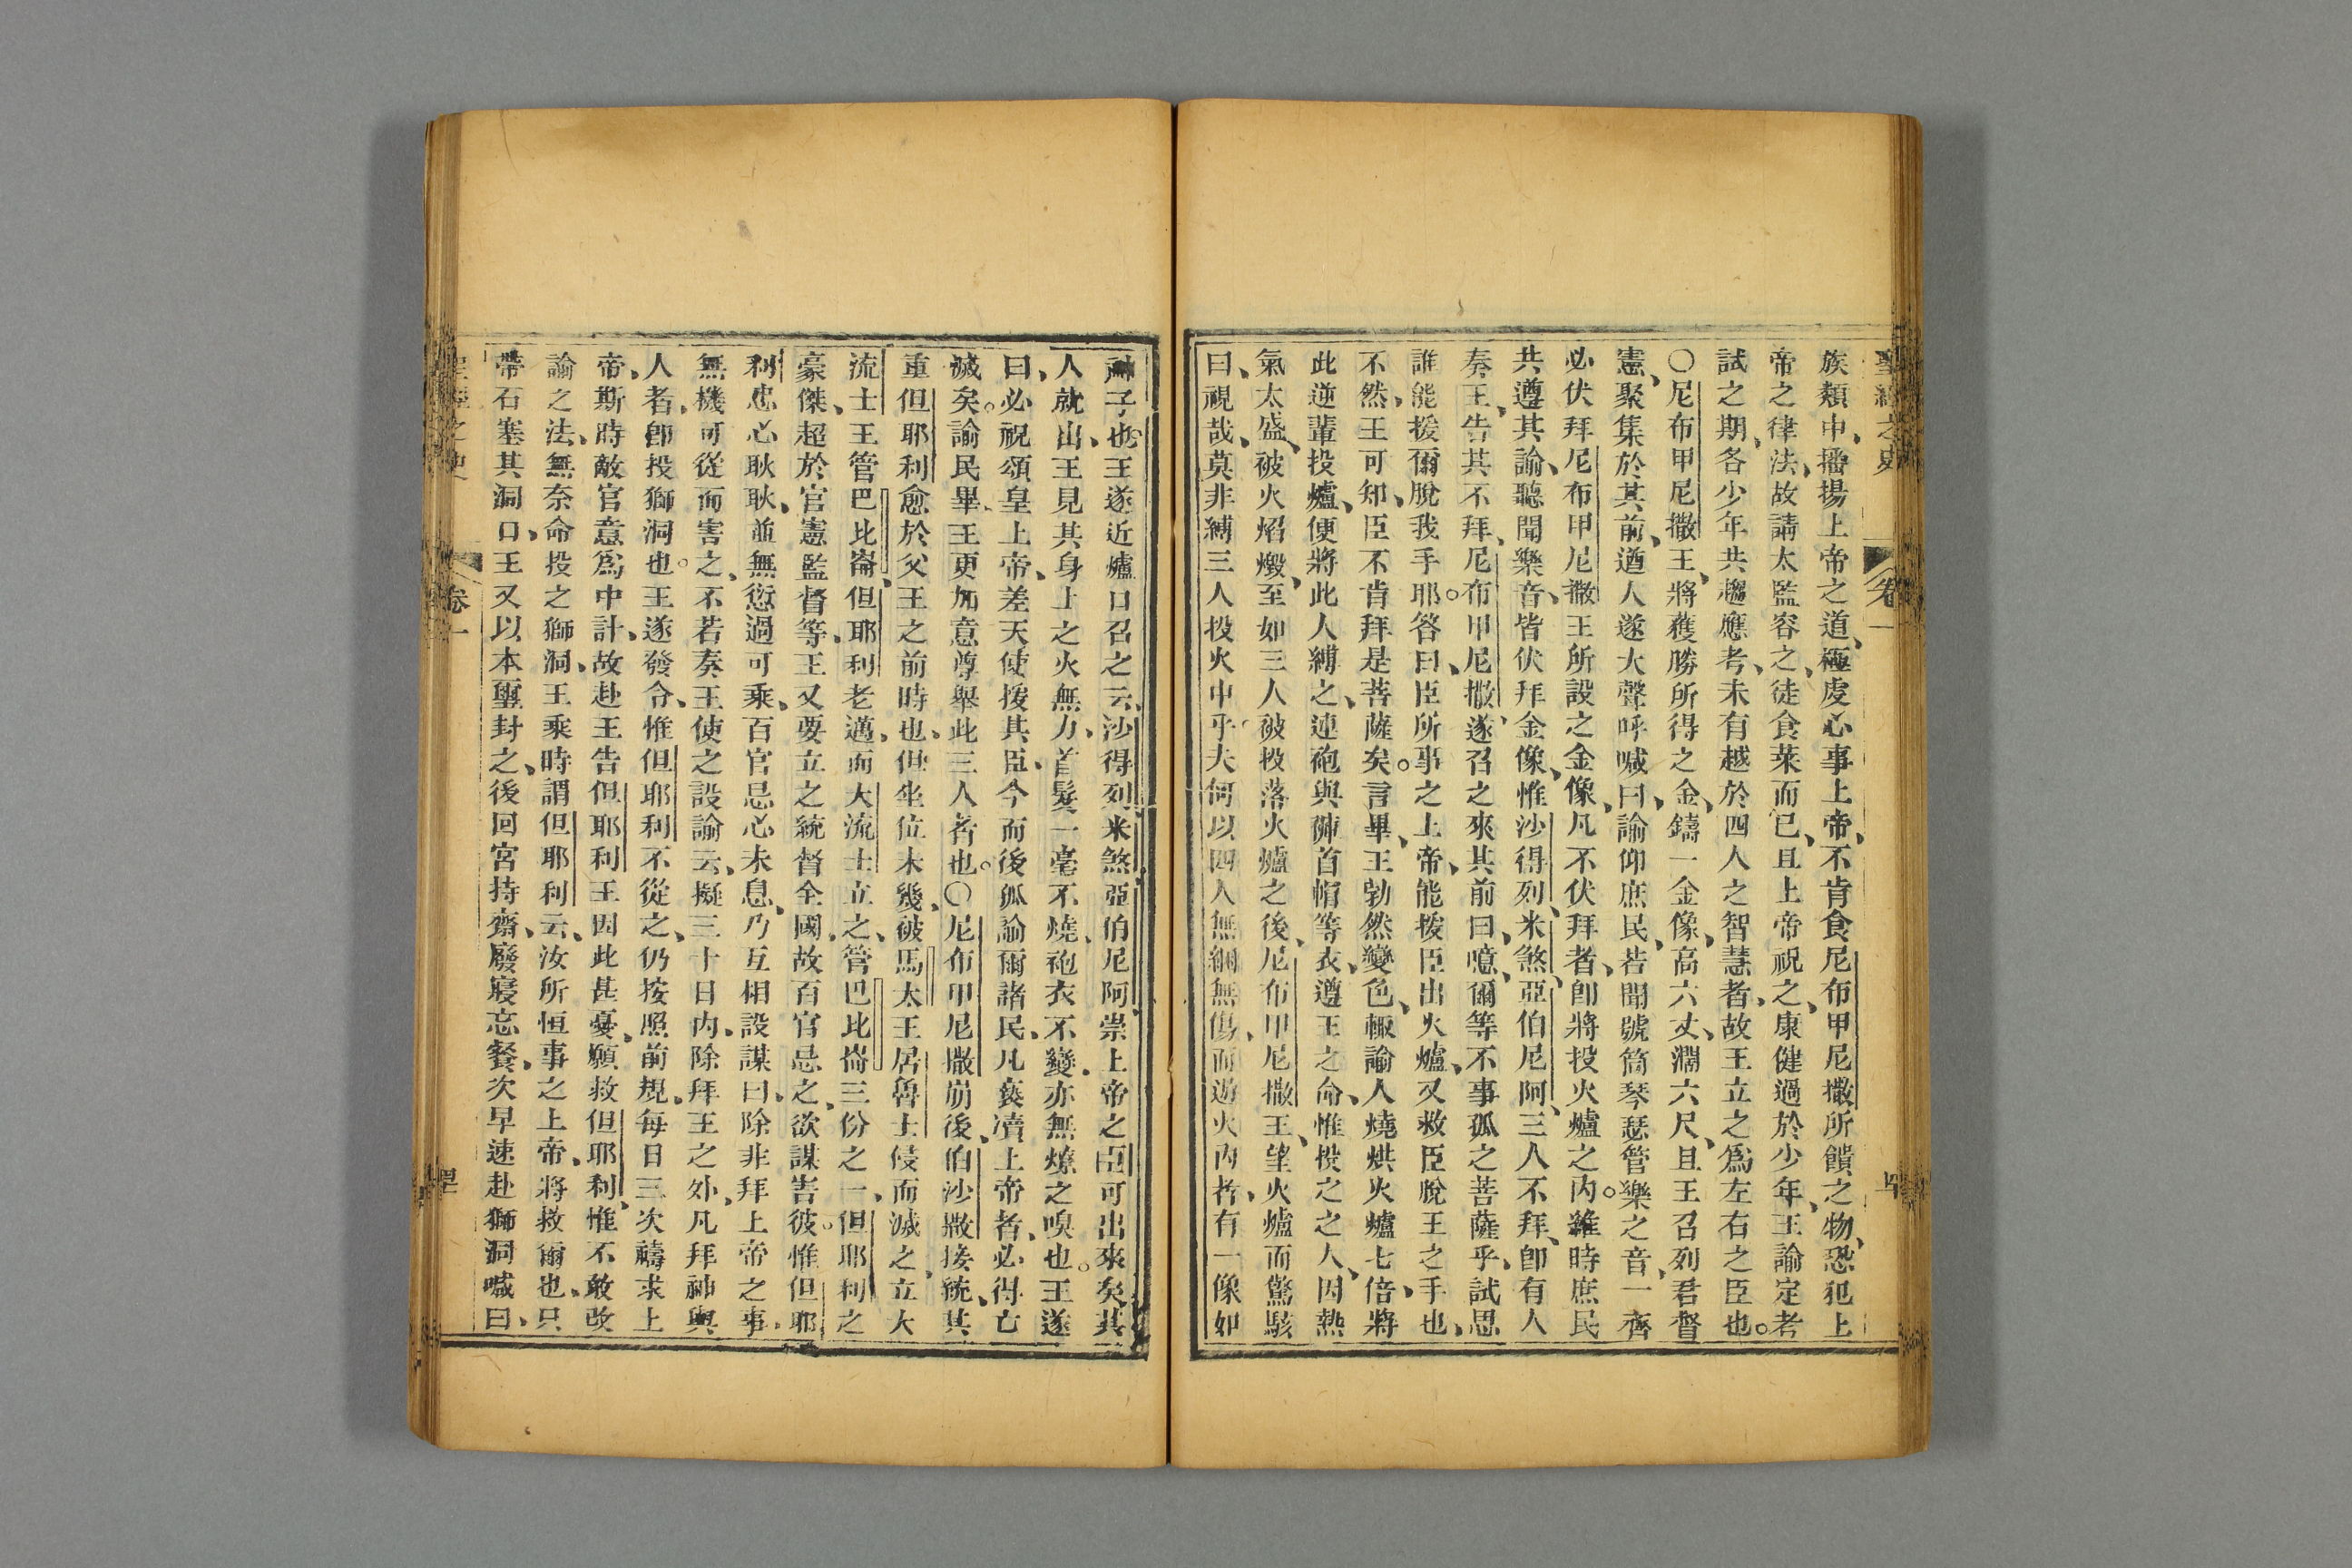 聖經之史 卷一
族類中、播揚上帝之道、極虔心事上帝、不肯食尼布甲尼撒所饋之物、恐犯上
帝之律法、故請太監容之、徒食菜而已、且上帝祝之、康健過於少年、王諭定考
試之期、各少年共趨應考、未有越於四人之智慧者、故王立之為左右之臣也。
○尼布甲尼撒王、將獲勝所得之金、鑄一金像、高六丈、濶六尺、且王召列君督
憲、聚集於其前、遒人遂大聲呼喊曰、諭仰庶民、若聞號筒琴瑟管樂之音、一齊
必伏拜尼布甲尼撒王所設之金像、凡不伏拜者、卽將投火爐之內。維時庶民
共遵其諭、聽聞樂音、皆伏拜金像、惟沙得列、米煞、亞伯尼阿、三人不拜、卽有人
奏王、告其不拜、尼布甲尼撒、遂召之來其前曰、噫、爾等不事孤之菩薩乎、試思
誰能援爾脫我手耶。答曰、臣所事之上帝、能援臣出火爐、又救臣脫王之手也、
不然、王可知、臣不肯拜是菩薩矣。言畢、王勃然變色、輒諭人燒烘火爐七倍、將
此逆輩投爐、便將此人縛之、連砲與褲首帽等衣、遵王之命、惟投之之人、因熱
氣太盛、被火焰燬、至如三人被投落火爐之後、尼布甲尼撒王、望火爐而驚駭
曰、視哉、莫非縛三人投火中乎。夫何以四人無綑無傷、而遊火內者、有一像如
神子也。王遂近爐口召之云、沙得列、米煞、亞伯尼阿、崇上帝之臣、可出來矣、其
人就出、王見其身上之火無力、首髮一毫不燒、袍衣不變、亦無燎之嗅也。王遂
曰、必祝頌皇上帝、差天使援其臣、今而後孤諭爾諸民、凡褻瀆上帝者、必得亡
滅矣。諭民畢、王更加意尊舉此三人者也。○尼布甲尼撒崩後、伯沙撒接統、其
重但耶利愈於父王之前時也、但坐位未幾、被馬太王居魯士侵而滅之、立大
流士王管巴比崙、但耶利老邁、而大流士立之、管巴比崙三份之一、但耶利之
豪傑、超於官憲監督等、王又要立之統督全國、故百官忌之、欲謀害彼。惟但耶
利忠心耿耿、並無愆過可乘、百官忌心未息、乃互相設謀曰、除非拜上帝之事、
無機可從而害之、不若奏王使之設諭云、擬三十日內、除拜王之外、凡拜神與
人者、卽投獅洞也。王遂發令、惟但耶利不從之、仍按照前規、每日三次禱求上
帝、斯時敵官意為中計、故赴王告但耶利、王因此甚憂、願救但耶利、惟不敢改
諭之法、無奈命投之獅洞、王乘時謂但耶利云、汝所恒事之上帝、將救爾也、只
帶石塞其洞口、王又以本璽封之、後回宮持齋、廢寢忘餐、次早速赴獅洞喊曰、
聖經之史 卷一